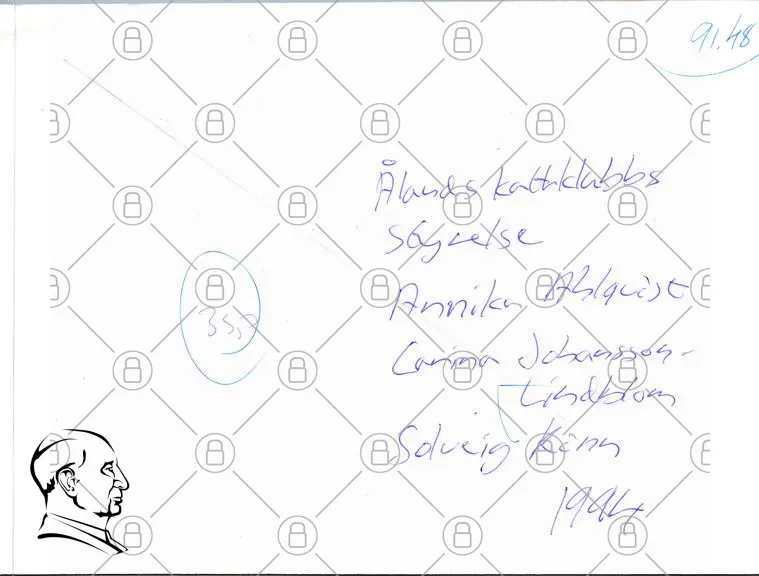 91.48
Ålands kattklubbs
styrelse
Annika Ahlqvist
Carina Johansson-
Lindblom
Solveig
1994